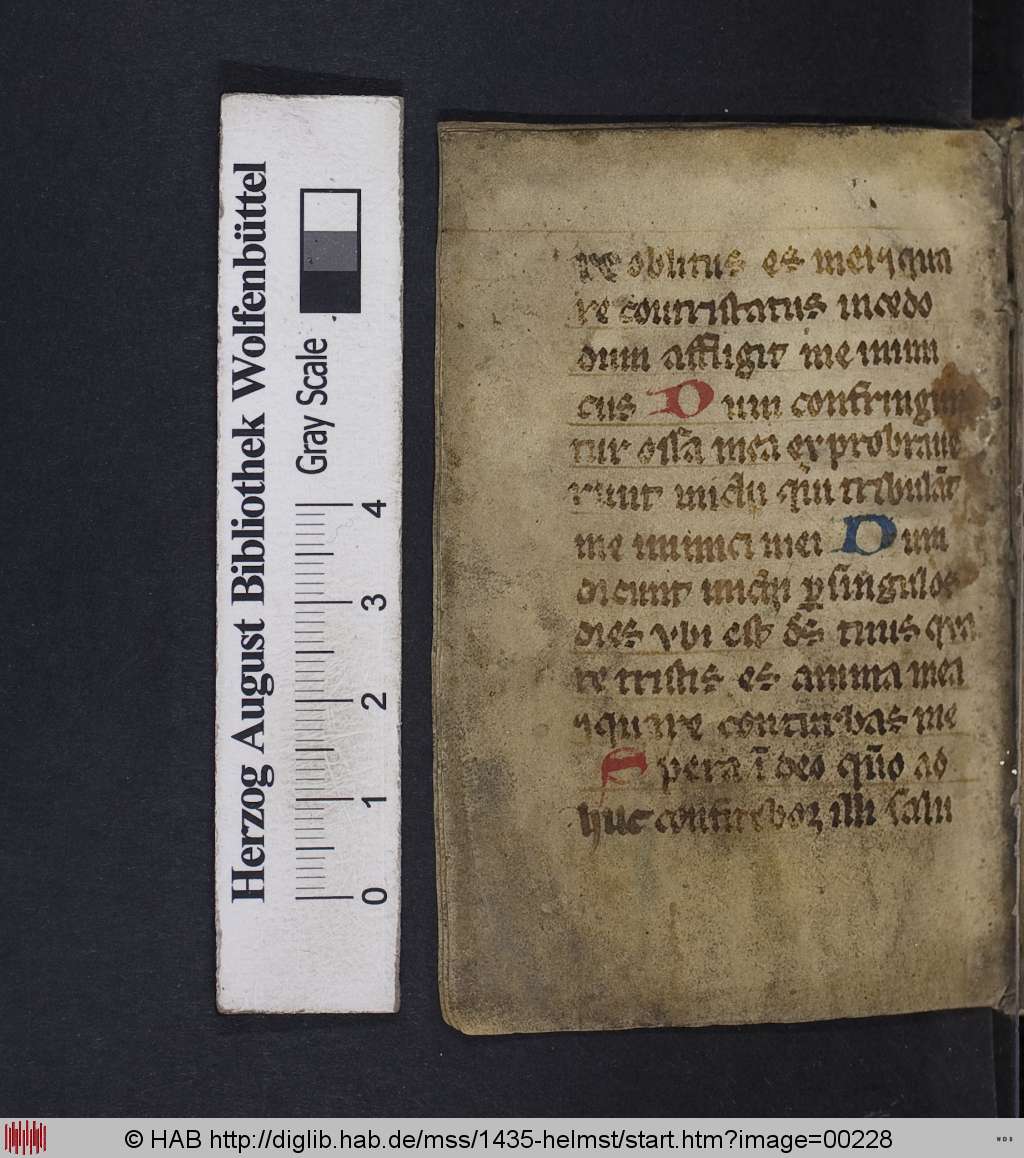 Herzog August Bibliothek Wolfenbüttel
Gray Scale
0 1 2 3 4
re oblitus es mei ⁊ qua
re contristatus incedo
dum affligit me inimi
cus Dum confringun
tur ossa mea exprobraue
runt michi qui tribulāt
me inimici mei Dum
dicunt michi ꝑ singulos
dies vbi est dс̄ tuus qua
re tristis es anima mea
⁊ quare conturbas me
Spera ī deo qn̄o ad
huc confitebor illi salu
© HAB http://diglib.hab.de/mss/1435-helmst/start.htm?image=00228